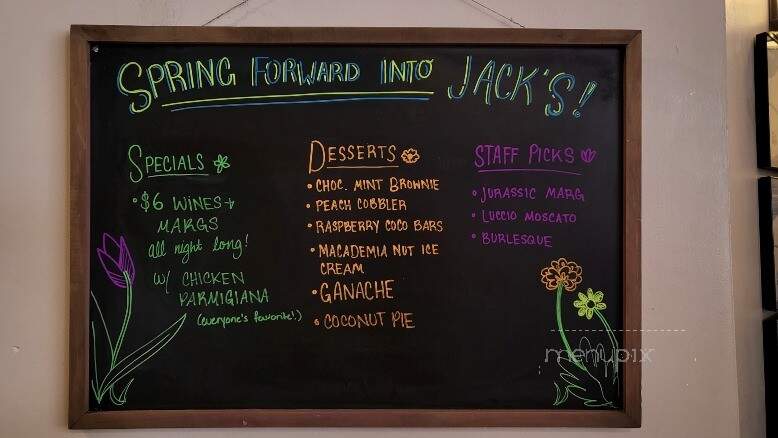 SPRING FORWARD INTO JACK'S!
SPECIALS
• $6 WINES +
MARGS
all night long!
W/ CHICKEN
PARMIGIANA
(everyone's favorite!)
DESSERTS
• CHOC. MINT BROWNIE
• PEACH COBBLER
• RASPBERRY COCO BARS
• MACADEMIA NUT ICE
CREAM
• GANACHE
• COCONUT PIE
STAFF PICKS
• JURASSIC MARG
• LUCCIO MOSCATO
• BURLESQUE
menupix